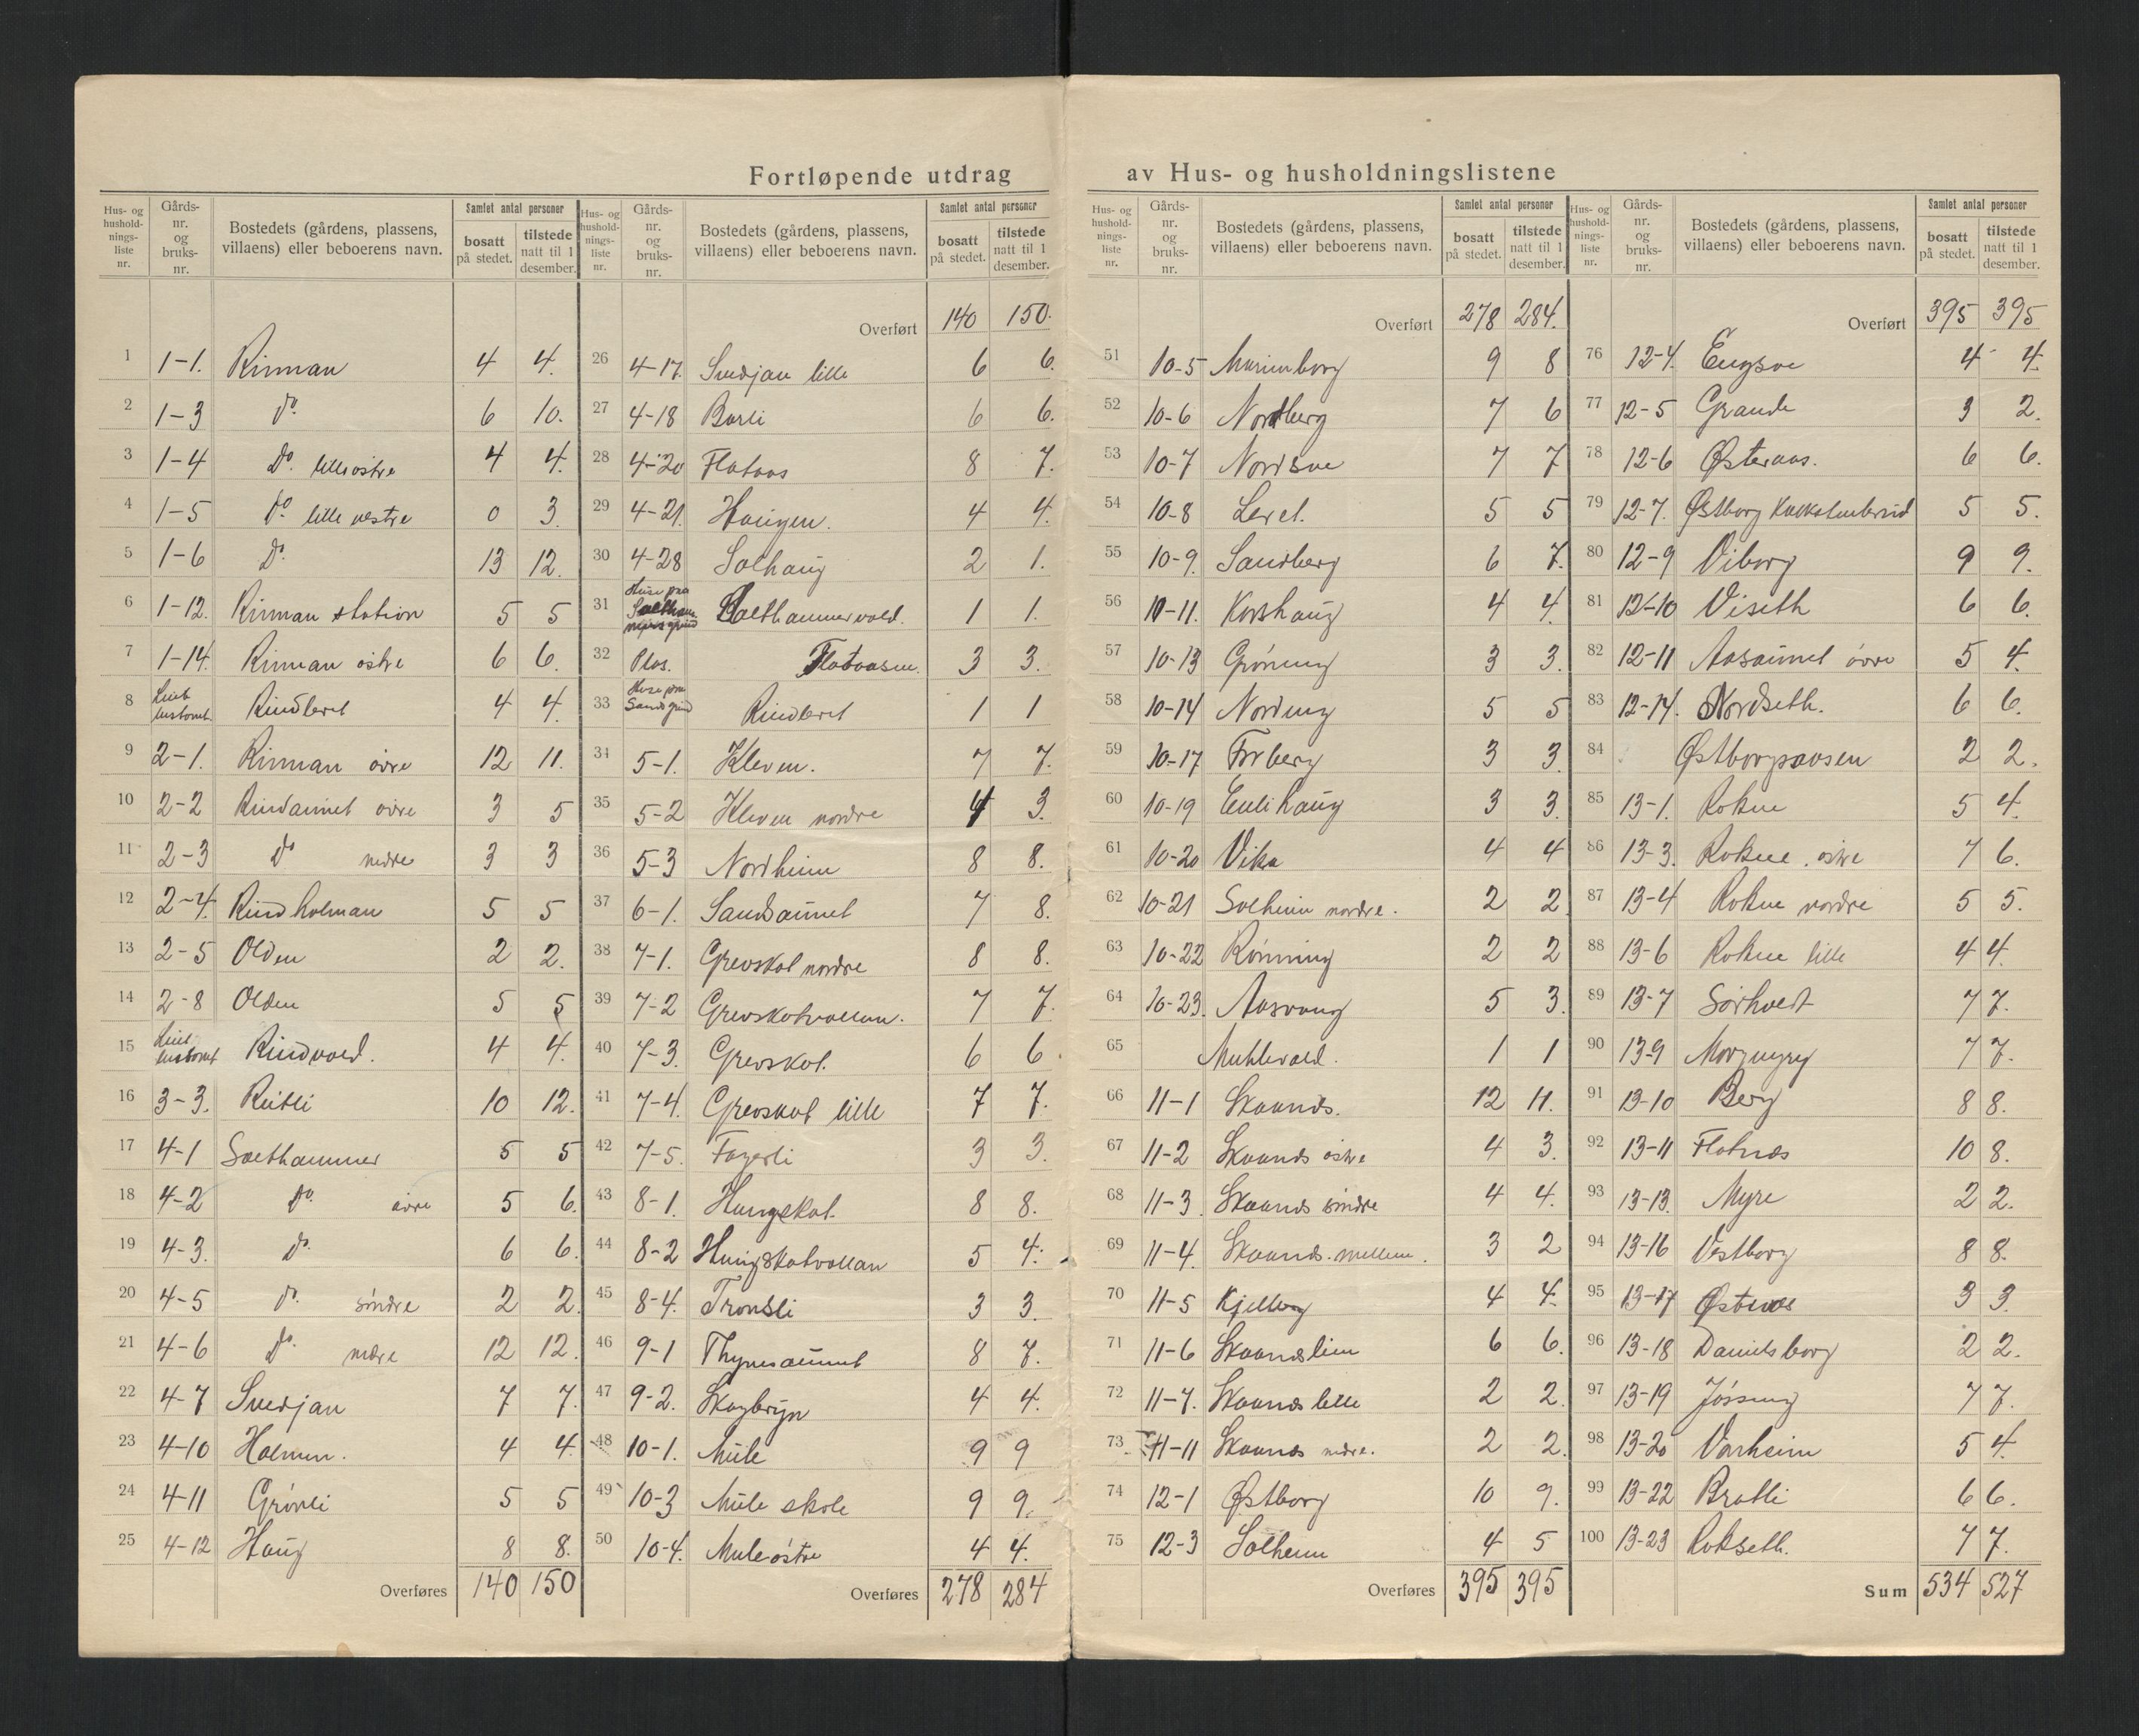 Fortløpende utdrag av Hus- og husholdningslistene
Hus- og hushold-nings-liste nr. Gårds-nr. og bruks-nr. Bostedets (gårdens, plassens, villaens) eller beboerens navn. Samlet antal personer bosatt på stedet. tilstede natt til 1 desember.
1 1-1. Rinman 4 4.
2 1-3 do. 6 10.
3 1-4 Do. lille østre 4 4.
4 1-5 do. lille vestre 0 3.
5 1-6 Do. 13 12.
6 1-12. Rinman station 5 5
7 1-14. Rinman østre 6 6.
8 Rindleret 4 4.
9 2-1. Rinman øvre 12 11.
10 2-2 Rindaunet øvre 3 5
11 2-3 do nedre 3 3
12 2-4. Rindholman 5 5
13 2-5 Olden 2 2.
14 2-8 Olden 5 5
15 Rindvold. 4 4.
16 3-3. Reitli 10 12.
17 4-1 Salthammer 5 5
18 4-2 do. øvre 5 6.
19 4-3. do. 6 6.
20 4-5 do. søndre 2 2.
21 4-6 do. nedre 12 12.
22 4-7 Svedjan 7 7.
23 4-10 Holmen. 4 4.
24 4-11 Grønli 5 5
25 4-12 Haug 8 8.
Overføres 140 150
Hus- og hushold-nings-liste nr. Gårds-nr. og bruks-nr. Bostedets (gårdens, plassens, villaens) eller beboerens navn. Samlet antal personer bosatt på stedet. tilstede natt til 1 desember.
Overført 140 150.
26 4-17. Svedjan lille 6 6.
27 4-18 Borli 6 6.
28 4-20 Flataas 8 7.
29 4-21. Haugen. 4 4.
30 4-28 Solhaug 2 1.
31 Salthammervold. 1 1.
32 Plas. Flataasen. 3 3.
33 Rindleret 1 1
34 5-1. Kleven. 7 7.
35 5-2 Kleven nordre 4 3.
36 5-3 Nordheim 8 8.
37 6-1. Sandaunet 7 8.
38 7-1. Grevskot nordre 8 8.
39 7-2 Grevskotvollan. 7 7.
40 7-3. Grevskot. 6 6
41 7-4. Grevskot lille 7 7.
42 7-5. Fagerli 3 3.
43 8-1. Hungskot. 8 8.
44 8-2 Hungskotvollan 5 4.
45 8-4. Tronsli 3 3.
46 9-1 Thynesaunet 8 7.
47 9-2. Skogbryn 4 4.
48 10-1. Mule 9 9
49 10-3 Mule skole 9 9.
50 10-4. Mule østre 4 4.
Overføres 278 284
Hus- og hushold-nings-liste nr. Gårds-nr. og bruks-nr. Bostedets (gårdens, plassens, villaens) eller beboerens navn. Samlet antal personer bosatt på stedet. tilstede natt til 1 desember.
Overført 278 284.
51 10-5 Marienborg 9 8
52 10-6 Nordberg 7 6
53 10-7 Nordsve 7 7
54 10-8 Leret. 5 5
55 10-9. Sandberg 6 7.
56 10-11. Korshaug 4 4.
57 10-13 Grønning 3 3.
58 10-14 Norderg 5 5
59 10-17 Forberg 3 3.
60 10-19 Enlihaug 3 3.
61 10-20 Vika 4 4
62 10-21 Solheim nordre. 2 2.
63 10-22 Rønning 2 2
64 10-23. Aasvang 5 3.
65 Muhlevold. 1 1
66 11-1 Skaanes. 12 11.
67 11-2 Skaanes østre 4 3.
68 11-3. Skaanes søndre 4 4.
69 11-4. Skaanes. mellem. 3 2
70 11-5 Kjelberg 4 4.
71 11-6 Skaaneslien 6 6.
72 11-7. Skaanes lille 2 2.
73 11-11 Skaanes nedre. 2 2.
74 12-1 Østborg 10 9.
75 12-3 Solheim 4 5
Overføres 395 395
Hus- og hushold-nings-liste nr. Gårds-nr. og bruks-nr. Bostedets (gårdens, plassens, villaens) eller beboerens navn. Samlet antal personer bosatt på stedet. tilstede natt til 1 desember.
Overført 395 395
76 12-4. Engsve 4 4.
77 12-5 Grande 3 2.
78 12-6 Østeraas. 6 6.
79 12-7. Østborg 5 5.
80 12-9 Viborg 9 9.
81 12-10 Viseth 6 6.
82 12-11 Aasaunet øvre 5 4.
83 12-14. Nordseth. 6 6.
84 Østborgaasen 2 2.
85 13-1. Rokne 5 4.
86 13-3. Rokne. østre 7 6.
87 13-4 Rokne nordre 5 5.
88 13-6 Rokne lille 4 4.
89 13-7 Sørholt 7 7.
90 13-9 7 7.
91 13-10 Berg 8 8.
92 13-11 Flatnes 10 8.
93 13-13. Myre 2 2.
94 13-16 Vestborg 8 8.
95 13-17 Østnes 3 3.
96 13-18 Danielsborg 2 2.
97 13-19 Jøssung 7 7.
98 13-20 Varheim 5 4.
99 13-22 Bratli 6 6.
100 13-23 Rokseth. 7 7.
Sum 534 527